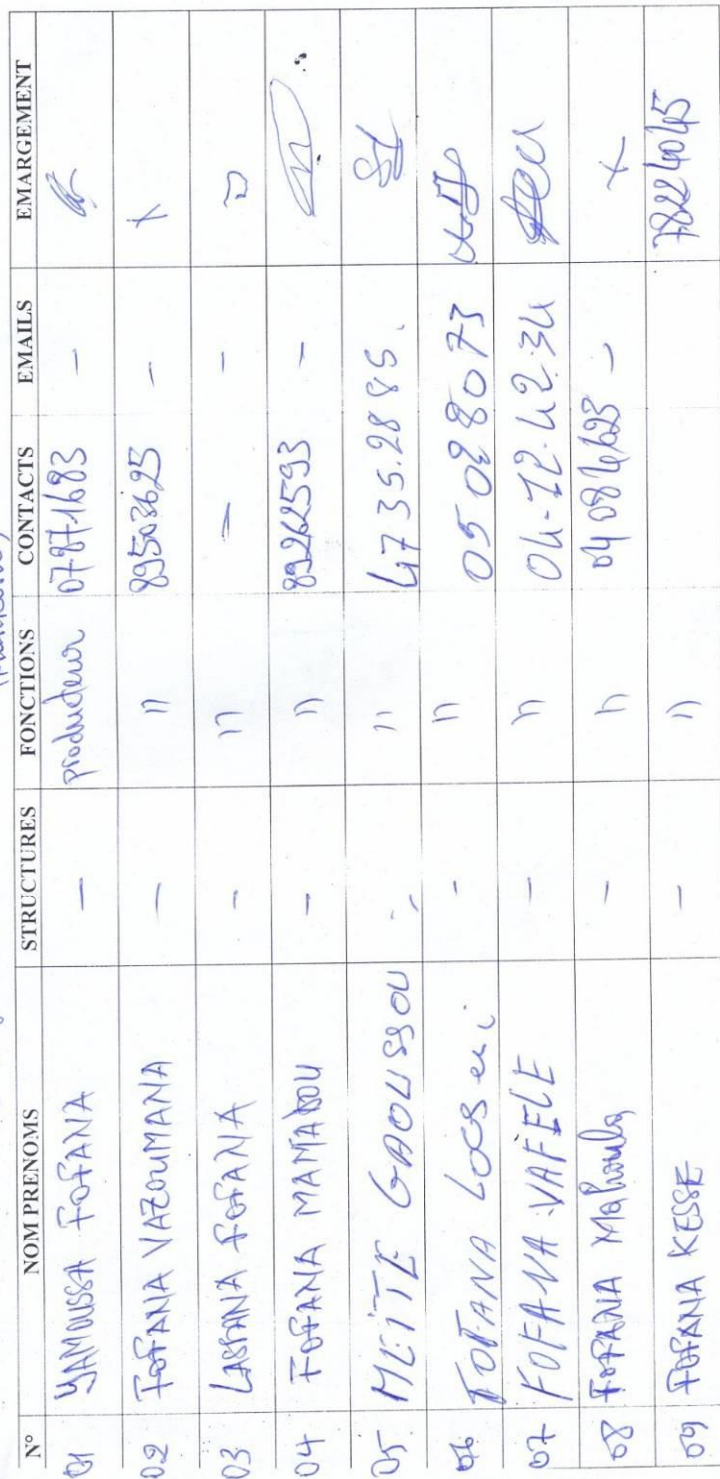 N° NOM PRENOMS STRUCTURES FONCTIONS CONTACTS EMAILS EMARGEMENT
01 YAMOUSSA FOFANA — producteur 07871683 —
02 FOFANA VAZOUMANA — 11 89503625 — X
03 LASSANA FOFANA — 11 — —
04 FOFANA MAMADOU — 11 89262593 —
05 MEITE GAOUSSOU — 11 4735.28 85.
06 FOFANA Losseni - 11 05 02 80 73
07 FOFANA VAFELE — 11 04-12-42.34
08 FOFANA — 11 — X
09 FOFANA KESSE — 11 78224045